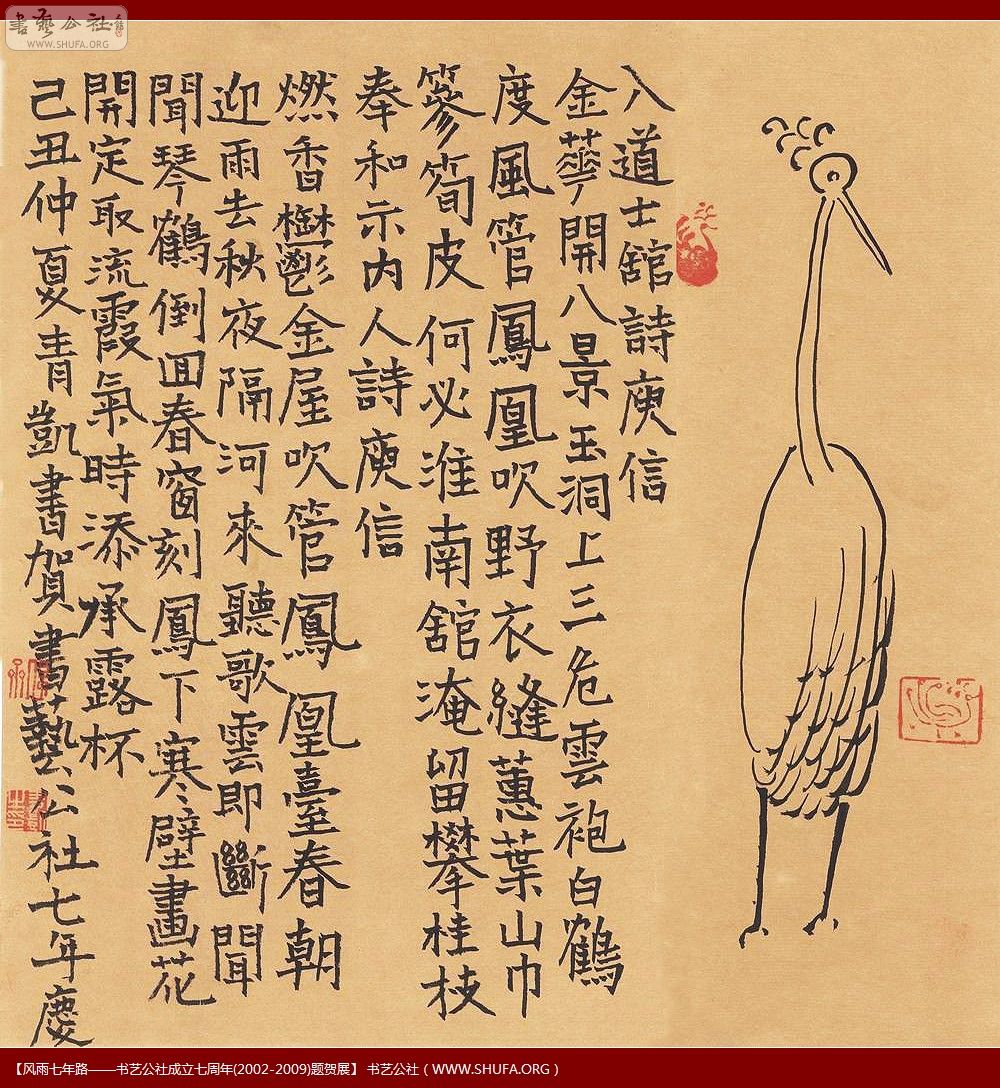 書藝公社
WWW.SHUFA.ORG
入道士舘詩庾信
金華開八景玉洞上三危雲袍白鶴
度風管鳳凰吹野衣縫蕙葉山巾
篸筍皮何必淮南舘淹留攀桂枝
奉和示内人詩庾信
燃香鬱金屋吹管鳳凰臺春朝
迎雨去秋夜隔河來聽歌雲即斷聞
聞琴鶴倒囬春窗刻鳳下寒壁畫花
開定取流霞氣時添承露杯
己丑仲夏青凱書賀書藝公社七年慶
【风雨七年路——书艺公社成立七周年(2002-2009)题贺展】 书艺公社（WWW.SHUFA.ORG）